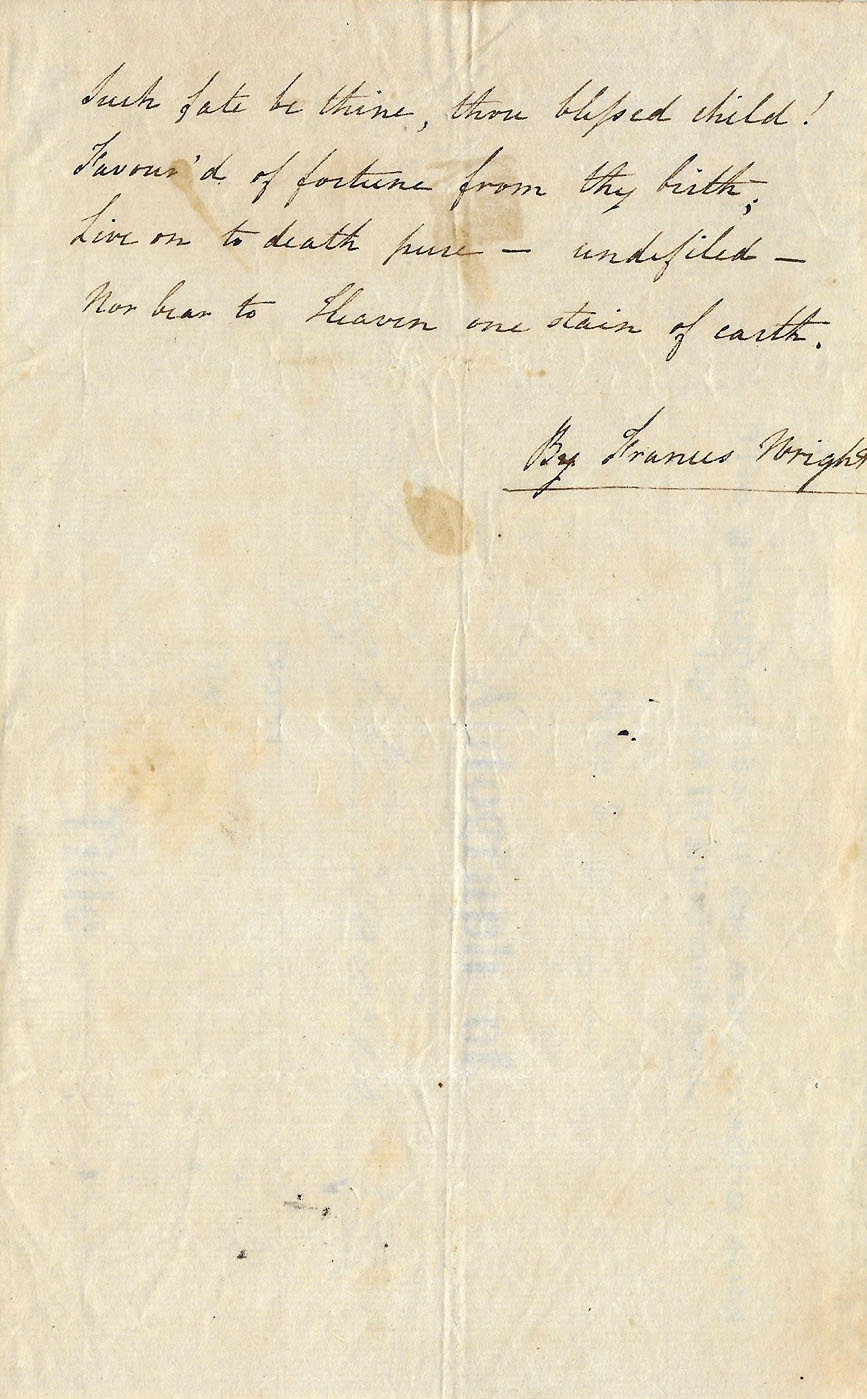 Such fate be thine, thou blessed child!
Favour'd of fortune from thy birth;
Live on to death pure — undefiled —
Nor bear to Heaven one stain of earth.
By Frances Wright